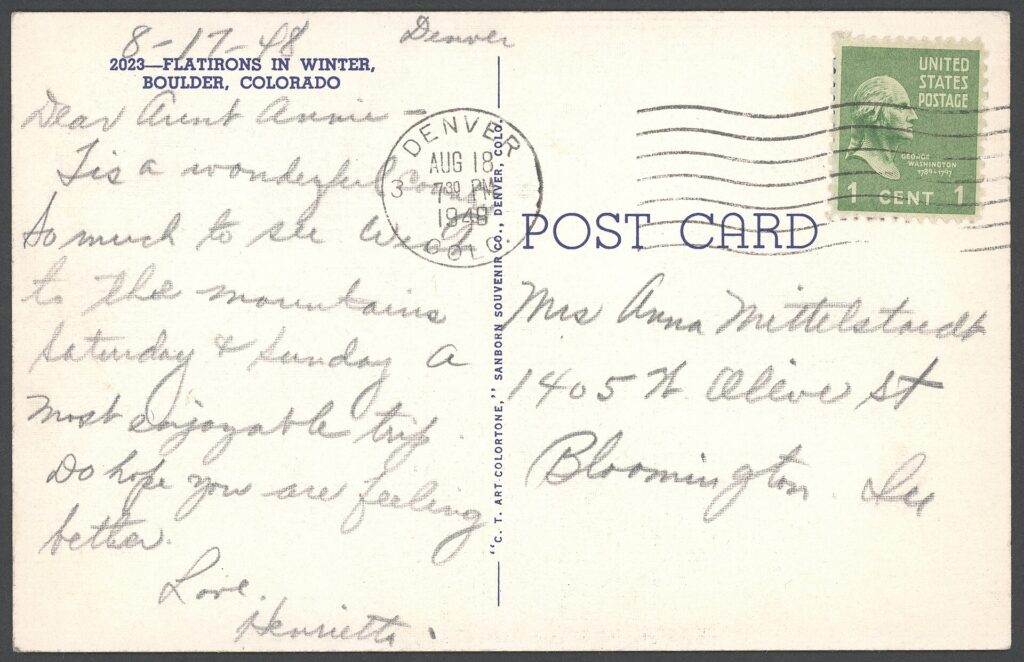 8-17-48 Denver
2023—FLATIRONS IN WINTER,
BOULDER, COLORADO
Dear Aunt Annie –
Tis a wonderful
So much to see
to the mountains
Saturday & Sunday a
most enjoyable trip.
Do hope you are feeling
better.
Love.
Henrietta.
DENVER
AUG 18
3 7 30 PM
1948
COLO.
"C. T. ART-COLORTONE," SANBORN SOUVENIR CO., DENVER, COLO.
UNITED
STATES
POSTAGE
GEORGE
WASHINGTON
1789-1797
1 CENT 1
POST CARD
Mrs Anna Mittelstaedt
1405 N. Olive St
Bloomington